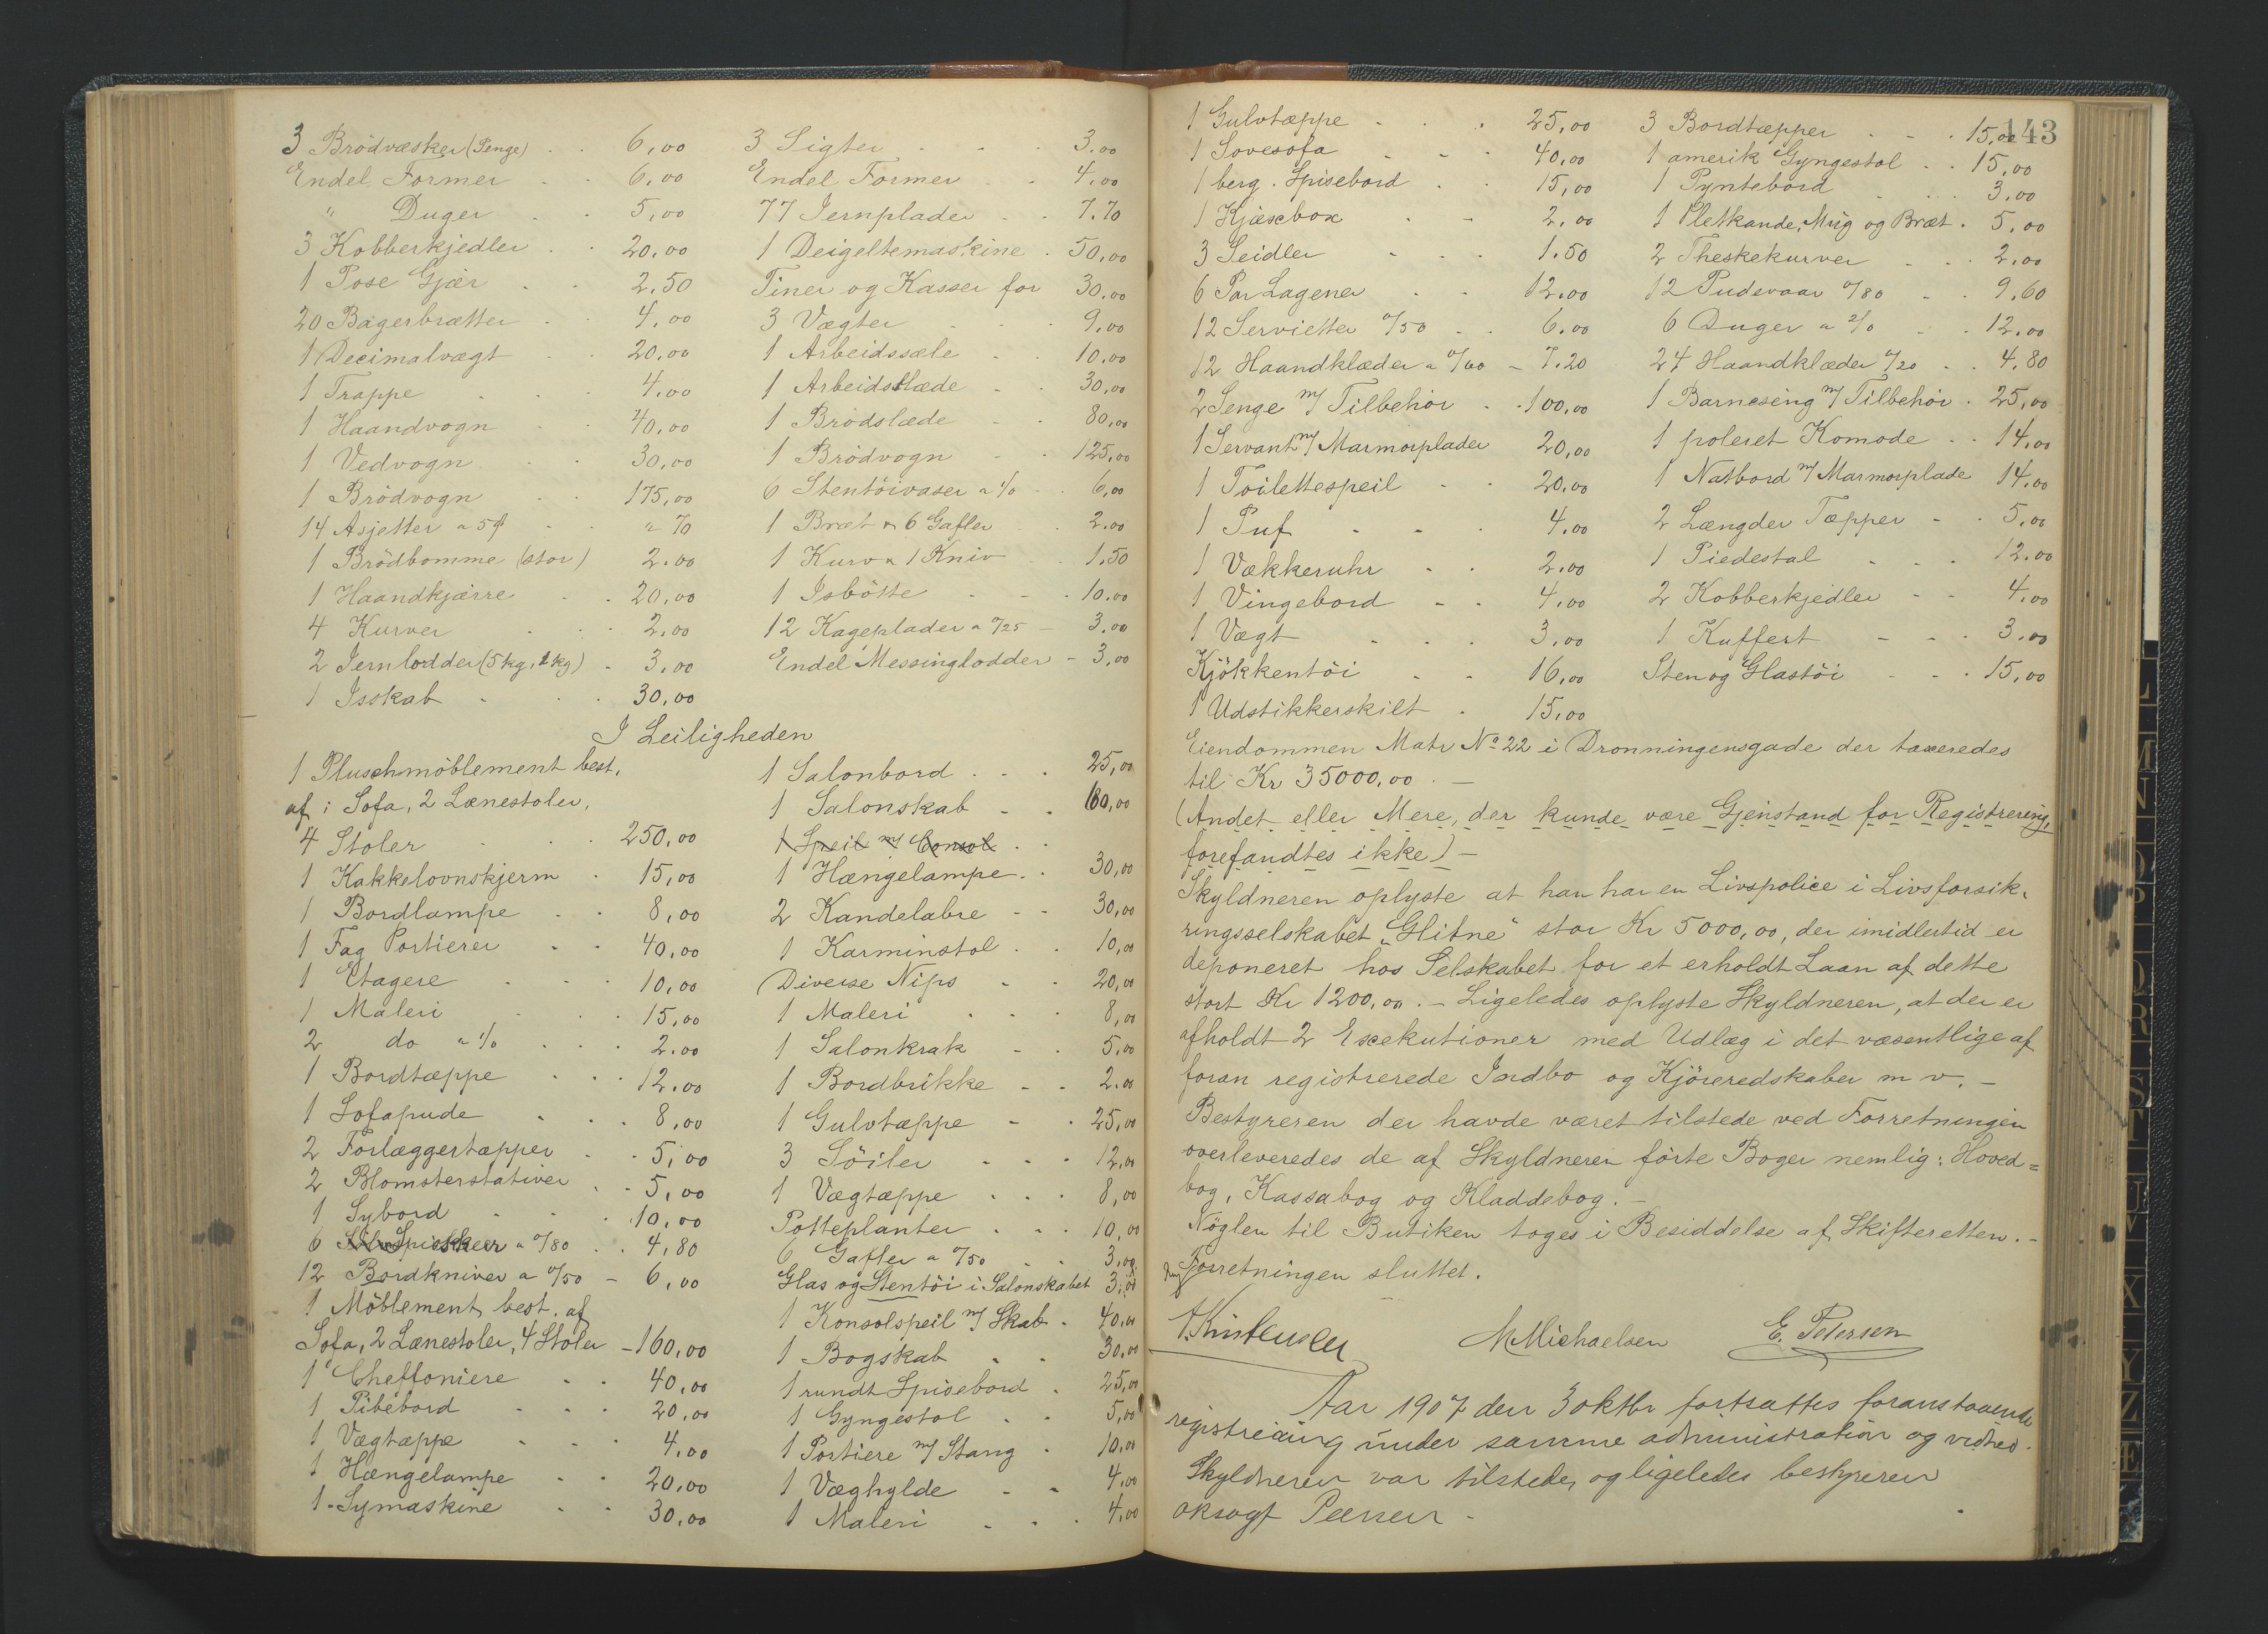 3 Brödvæsker (Penge) 6,00
Endel Former 6,00
" Duger 5,00
3 Kobberkjedler 20,00
1 Pose Gjær 2.50
20 Bagerbrætter 4,00
1 Decimalvægt 20,00
1 Trappe 4,00
1 Haandvogn 40,00
1 Vedvogn 30,00
1 Brödvogn 175,00
14 Asjetter a 5 " 70
1 Brödbomme (stor) 2.00
1 Haandkjærre 20,00
4 Kurver 2,00
2 Jernlodder (5 kg, 2 kg) 3,00
1 Isskab 30,00
3 Sigter 3,00
Endel Former 4,00
77 Jernplader 7.70
1 Deigeltemaskine 50,00
Tiner og Kasser for 30,00
3 Vægter 9,00
1 Arbeidssæle 10,00
1 Arbeidsslæde 30,00
1 Brödslæde 80,00
1 Brödvogn 125,00
6 Stentöivaser a 1/0 6,00
1 Bræt & 6 Gafler 2.00
1 Kurv & 1 Kniv 1.50
1 Isbötte 10.00
12 Kageplader a 0/25 3,00
Endel Messinglodder 3,00
I Leiligheden
1 Pluschmöblement best.
af: Sofa, 2 Lænestoler,
4 Stoler 250,00
1 Kakkelovnskjerm 15,00
1 Bordlampe 8,00
1 Fag Portierer 40,00
1 Etagere 10,00
1 Maleri 15,00
2 do a 1/0 2.00
1 Bordtæppe 12.00
1 Sofapude 8,00
2 Forlæggertæpper 5,00
2 Blomsterstativer 5,00
1 Sybord 10,00
6 Spiskeer a 0/80 4,80
12 Bordkniver a 0/50 6,00
1 Möblement best. af
Sofa, 2 Lænestoler, 4 Stoler 160,00
1 Cheffoniere 40,00
1 Pibebord 20,00
1 Vægtæppe 4,00
1 Hængelampe 20,00
1 Symaskine 30,00
1 Salonbord 25,00
1 Salonskab 60,00
1 Speil m/ Consol
1 Hængelampe 30,00
2 Kandelabre 30,00
1 Karminstol 10,00
Diverse Nips 20,00
1 Maleri 8,00
1 Salonkrak 5,00
1 Bordbrikke 2.00
1 Gulvtæppe 25,00
3 Söiler 12,00
1 Vægtæppe 8,00
Potteplanter 10,00
6 Gafler a 0/50 3,00
Glas og Stentöi i Salonskabet 3,00
1 Konsolspeil m/ Skab 40,00
1 Bogskab 30,00
1 rundt Spisebord 25,00
1 Gyngestol 5,00
1 Portiere m/ Stang 10,00
1 Væghylde 4,00
1 Maleri 4,00
143
1 Gulvtæppe 25,00
1 Sovesofa 40,00
1 berg. Spisebord 15,00
1 Kjæxbox 2,00
3 Seidler 1.50
6 Par Lagener 12.00
12 Servietter 0/50 6.00
12 Haandklæder a 0/60 7.20
2 Senge m/ Tilbehör 100,00
1 Servant m/ Marmorplader 20,00
1 Toilettespeil 20,00
1 Puf 4,00
1 Vækkeruhr 2,00
1 Vingebord 4,00
1 Vægt 3,00
Kjökkentöi 16,00
1 Udstikkerskilt 15,00
3 Bordtæpper 15,00
1 amerik Gyngestol 15,00
1 Pyntebord 3,00
1 Pletkande, Mug og Bræt 5,00
2 Theskekurver 2,00
12 Pudevaar 0/80 9.60
6 Duger a 2/0 12,00
24 Haandklæder 0/20 4.80
1 Barneseng m/ Tilbehör 25,00
1 poleret Komode 14,00
1 Natbord m/ Marmorplade 14,00
2 Længder Tæpper 5,00
1 Piedestal 12.00
2 Kobberkjedler 4,00
1 Kuffert 3,00
Sten og Glastöi 15,00
Eiendommen Matr No 22 i Dronningensgade der taxeredes
til Kr 35000,00. –
(Andet eller Mere, der kunde være Gjenstand for Registrering,
forefandtes ikke) –
Skyldneren oplyste at han har en Livspolice i Livsforsik-
ringsselskabet „Glitne" stor Kr 5000,00, der imidlertid er
deponeret hos Selskabet for et erholdt Laan af dette
stort Kr 1200,00. – Ligeledes oplyste Skyldneren, at der er
afholdt 2 Exekutioner med Udlæg i det væsentlige af
foran registrerede Indbo og Kjöreredskaber m v. –
Bestyreren der havde været tilstede ved Forretningen
overleveredes de af Skyldneren förte Boger nemlig: Hoved=
bog, Kassabog og Kladdebog. –
Nöglen til Butiken toges i Besiddelse af Skifteretten. –
Forretningen sluttet.
A. Kristensen M Michaelsen E. Petersen
Aar 1907 den 3 oktbr fortsattes foranstaaende
registrering under samme administration og vidner.
Skyldneren var tilstede, og ligeledes bestyreren
oksagf